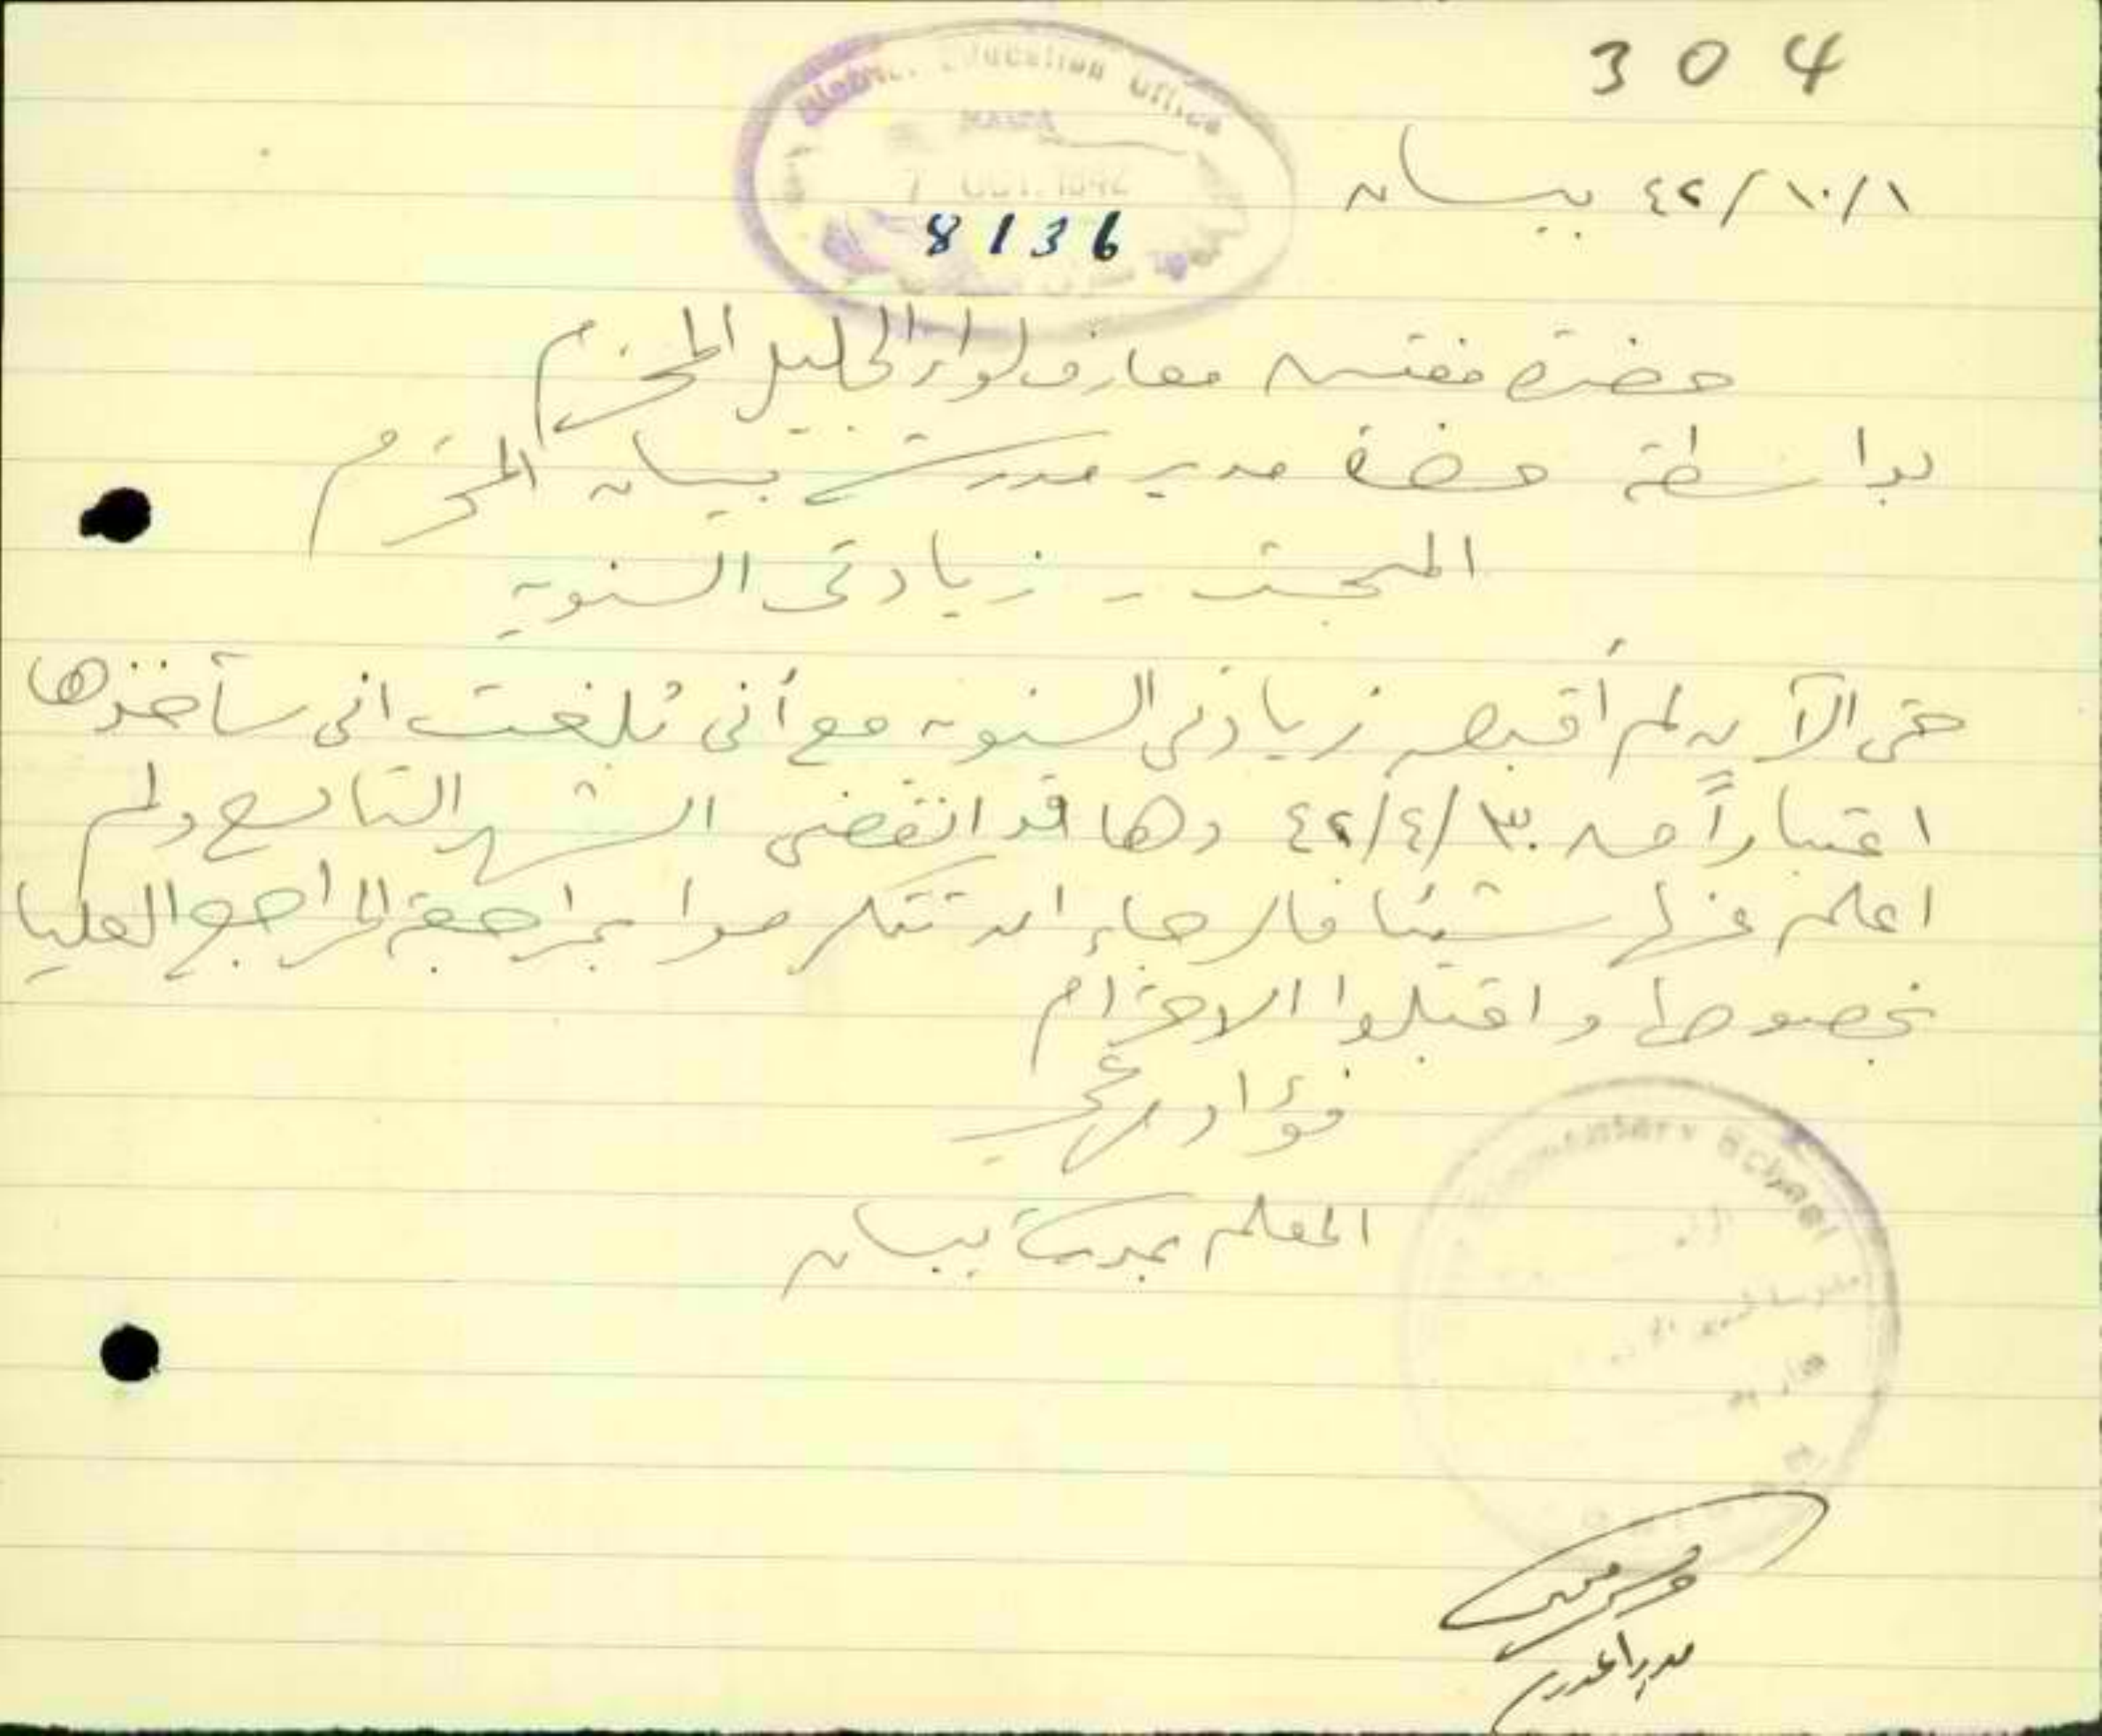 304
District Education Office
7 OCT. 1942
8136
بيسان ٤٢/١٠/١
حضرة مفتش معارف لواء الجليل المحترم
بواسطة حضرة مدير مدرسة بيسان المحترم
المبحث - زيادتي السنوية
حتى الآن لم أقبض زيادتي السنوية مع أني بُلغت اني سآخذها
اعتباراً من ٤٢/٤/٣٠ وها قد انقضى الشهر التاسع ولم
اعلم عنها شيئا فالرجاء ان تتكرموا بمراجعة المراجع العليا
بخصوصها واقبلوا الاحترام
فؤاد
المعلم بمدرسة بيسان
Elementary School
مدير المدرسة